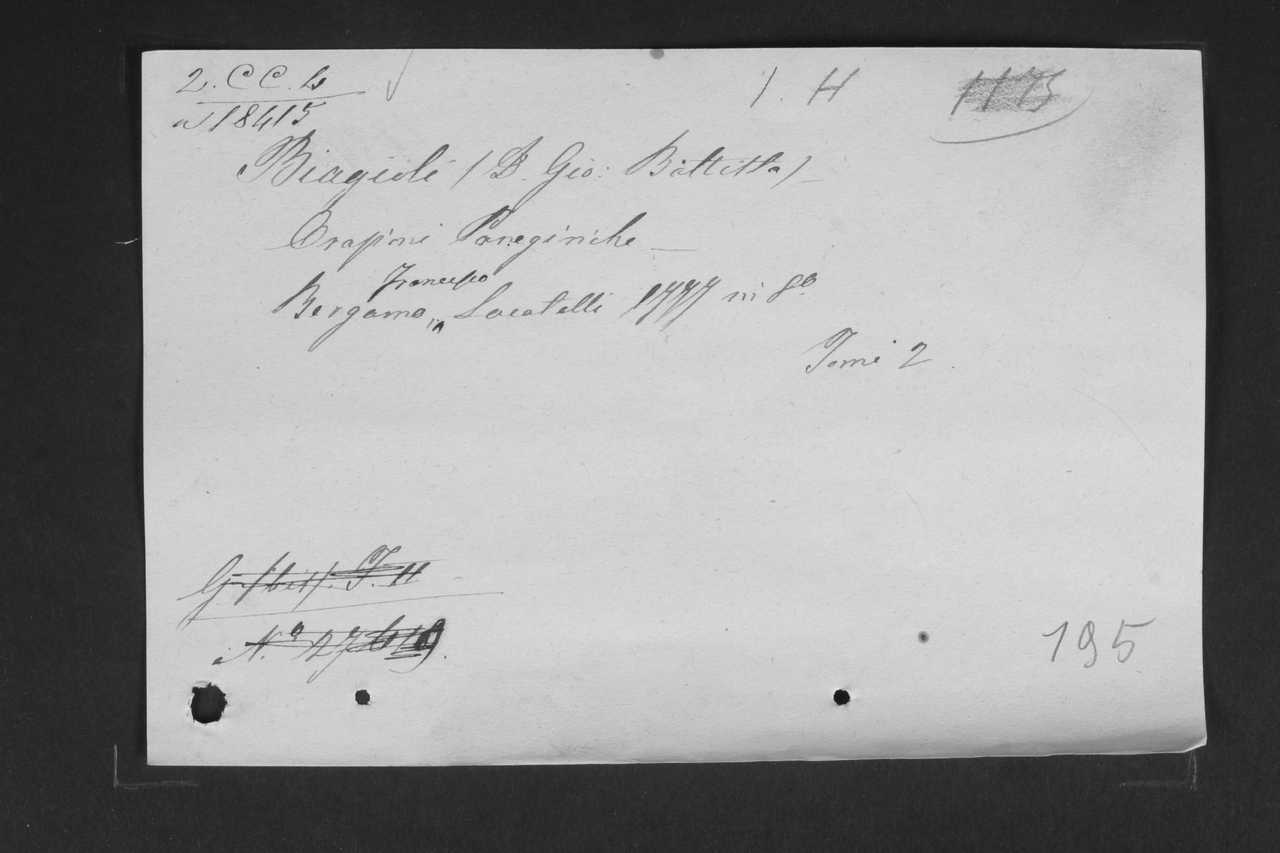 2. CC. 4 1. H 1173
N 18415
Biagioli (D. Gio: Battista)
Orazioni Panegiriche
Francesco
Bergamo, Locatelli 1777 in 8º
Tomi 2.
T. H
Nº 27
195